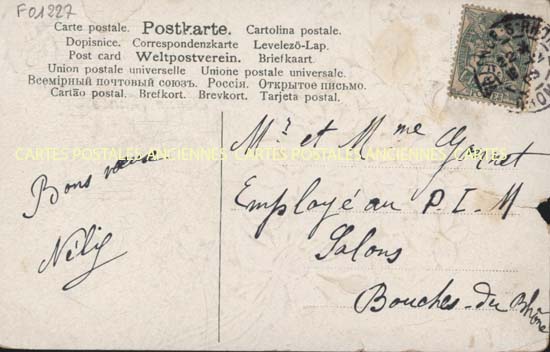 F01227
Carte postale. Postkarte. Cartolina postale.
Dopisnice. Correspondenzkarte Levelező-Lap.
Post card Weltpostverein. Briefkaart.
Union postale universelle. Unione postale universale.
Всемірный почтовый союзъ. Россія. Открытое письмо.
Cartão postal. Brefkort. Brevkort. Tarjeta postal.
CARTES POSTALES ANCIENNES CARTES POSTALES ANCIENNES CARTES
Mr et Mme
Employé au P. L. M
Salons
Bouches-du Rhône
Bons